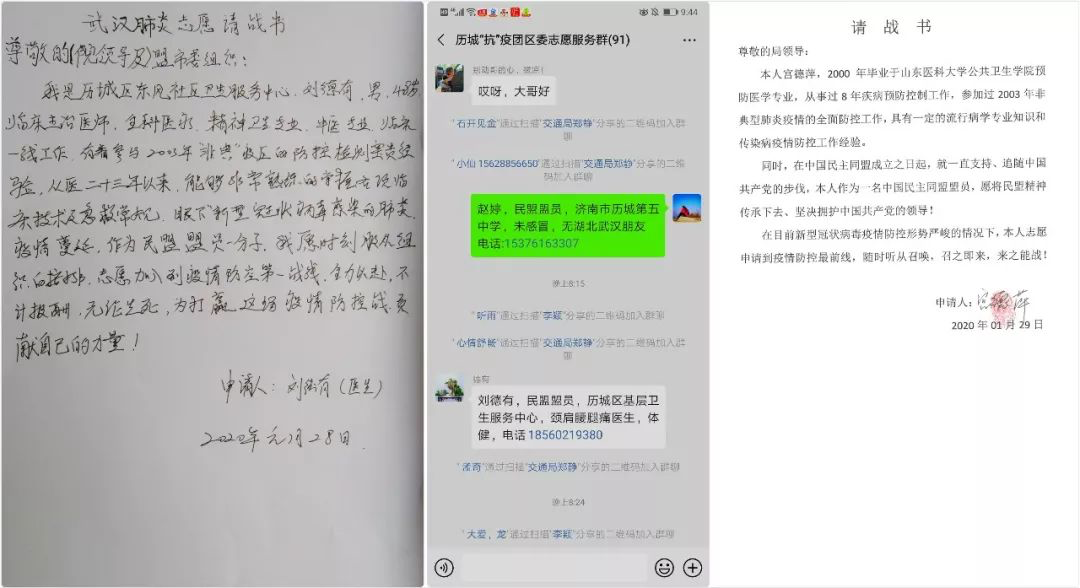 武汉肺炎志愿请战书
尊敬的(院领导及)盟市委组织：
我是历城区东风社区卫生服务中心，刘德有，男，48岁
临床主治医师，全科医师，精神卫生专业，中医专业，临床
一线工作，有着参与2003年"非典"
验，从医二十三年以来，能够非常熟练的掌握
杂技术及急救常规，眼下新型冠状病毒感染的肺炎
疫情蔓延，作为民盟盟员一分子，我愿时刻服从组
织的安排，志愿加入到疫情防控第一战线，全力以赴，不
计报酬，无论生死，为打赢这场疫情防控战贡
献自己的力量！
申请人：刘德有（医生）
2020年元月28日
9:44
历城"抗"疫团区委志愿服务群(91)
哎呀，大哥好
"石开见金"通过扫描"交通局郑静"分享的二维码加入群
聊
"小仙 15628856650"通过扫描"交通局郑静"分享的二维
码加入群聊
赵婷，民盟盟员，济南市历城第五
中学，未感冒，无湖北武汉朋友
电话:15376163307
晚上8:15
"听雨"通过扫描"李颖"分享的二维码加入群聊
"心情舒畅"通过扫描"交通局郑静"分享的二维码加入群
聊
刘德有，民盟盟员，历城区基层卫
生服务中心，颈肩腰腿痛医生，体
健，电话 18560219380
"孟奇"通过扫描"交通局郑静"分享的二维码加入群聊
晚上8:24
"大爱，龙"通过扫描"李颖"分享的二维码加入群聊
请 战 书
尊敬的局领导：
本人宫德萍，2000 年毕业于山东医科大学公共卫生学院预
防医学专业，从事过 8 年疾病预防控制工作，参加过 2003 年非
典型肺炎疫情的全面防控工作，具有一定的流行病学专业知识和
传染病疫情防控工作经验。
同时，在中国民主同盟成立之日起，就一直支持、追随中国
共产党的步伐，本人作为一名中国民主同盟盟员，愿将民盟精神
传承下去、坚决拥护中国共产党的领导！
在目前新型冠状病毒疫情防控形势严峻的情况下，本人志愿
申请到疫情防控最前线，随时听从召唤，召之即来，来之能战！
申请人：宫德萍
2020 年 01 月 29 日